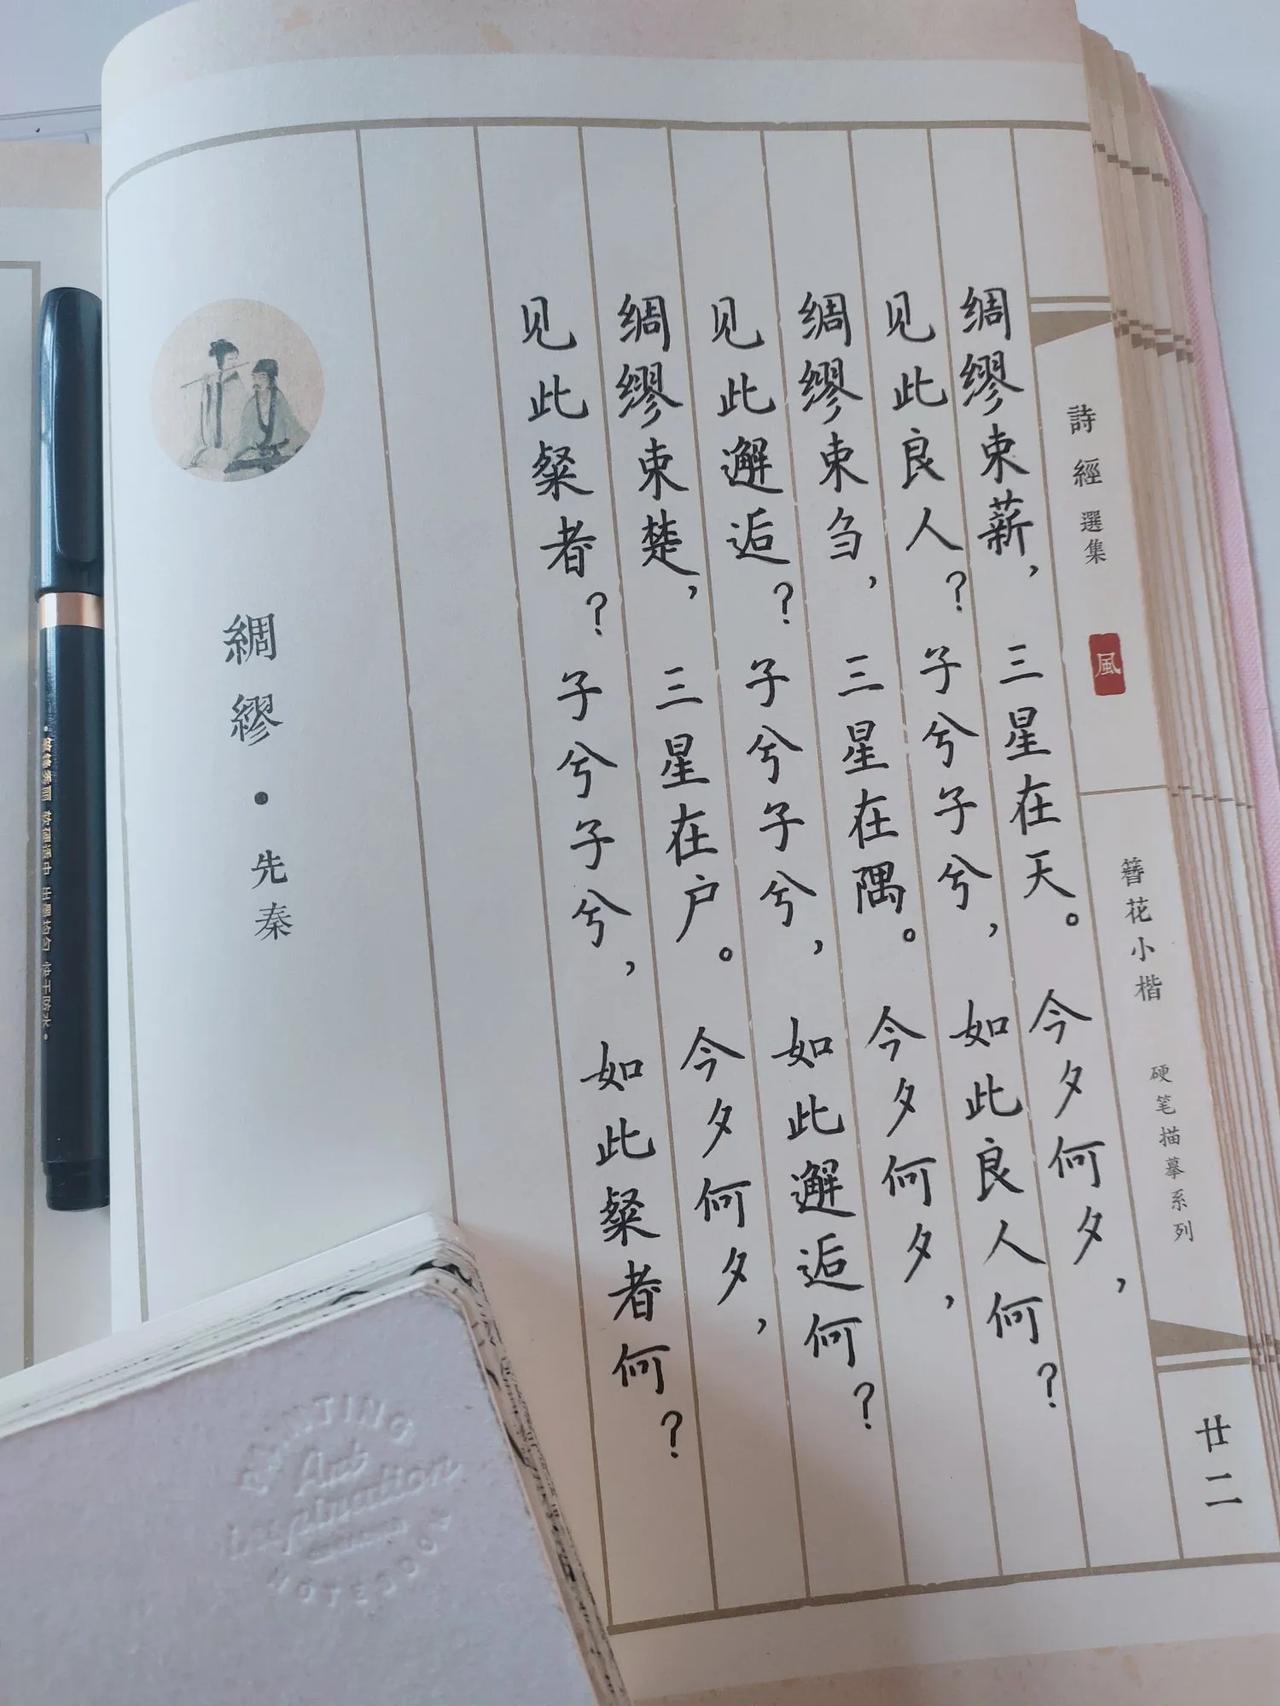 詩經選集
風
簪花小楷
硬笔描摹系列
廿二
绸缪束薪，三星在天。今夕何夕，
见此良人？子兮子兮，如此良人何？
绸缪束刍，三星在隅。今夕何夕，
见此邂逅？子兮子兮，如此邂逅何？
绸缪束楚，三星在户。今夕何夕，
见此粲者？子兮子兮，如此粲者何？
綢繆·先秦
Art
NOTEBOOK